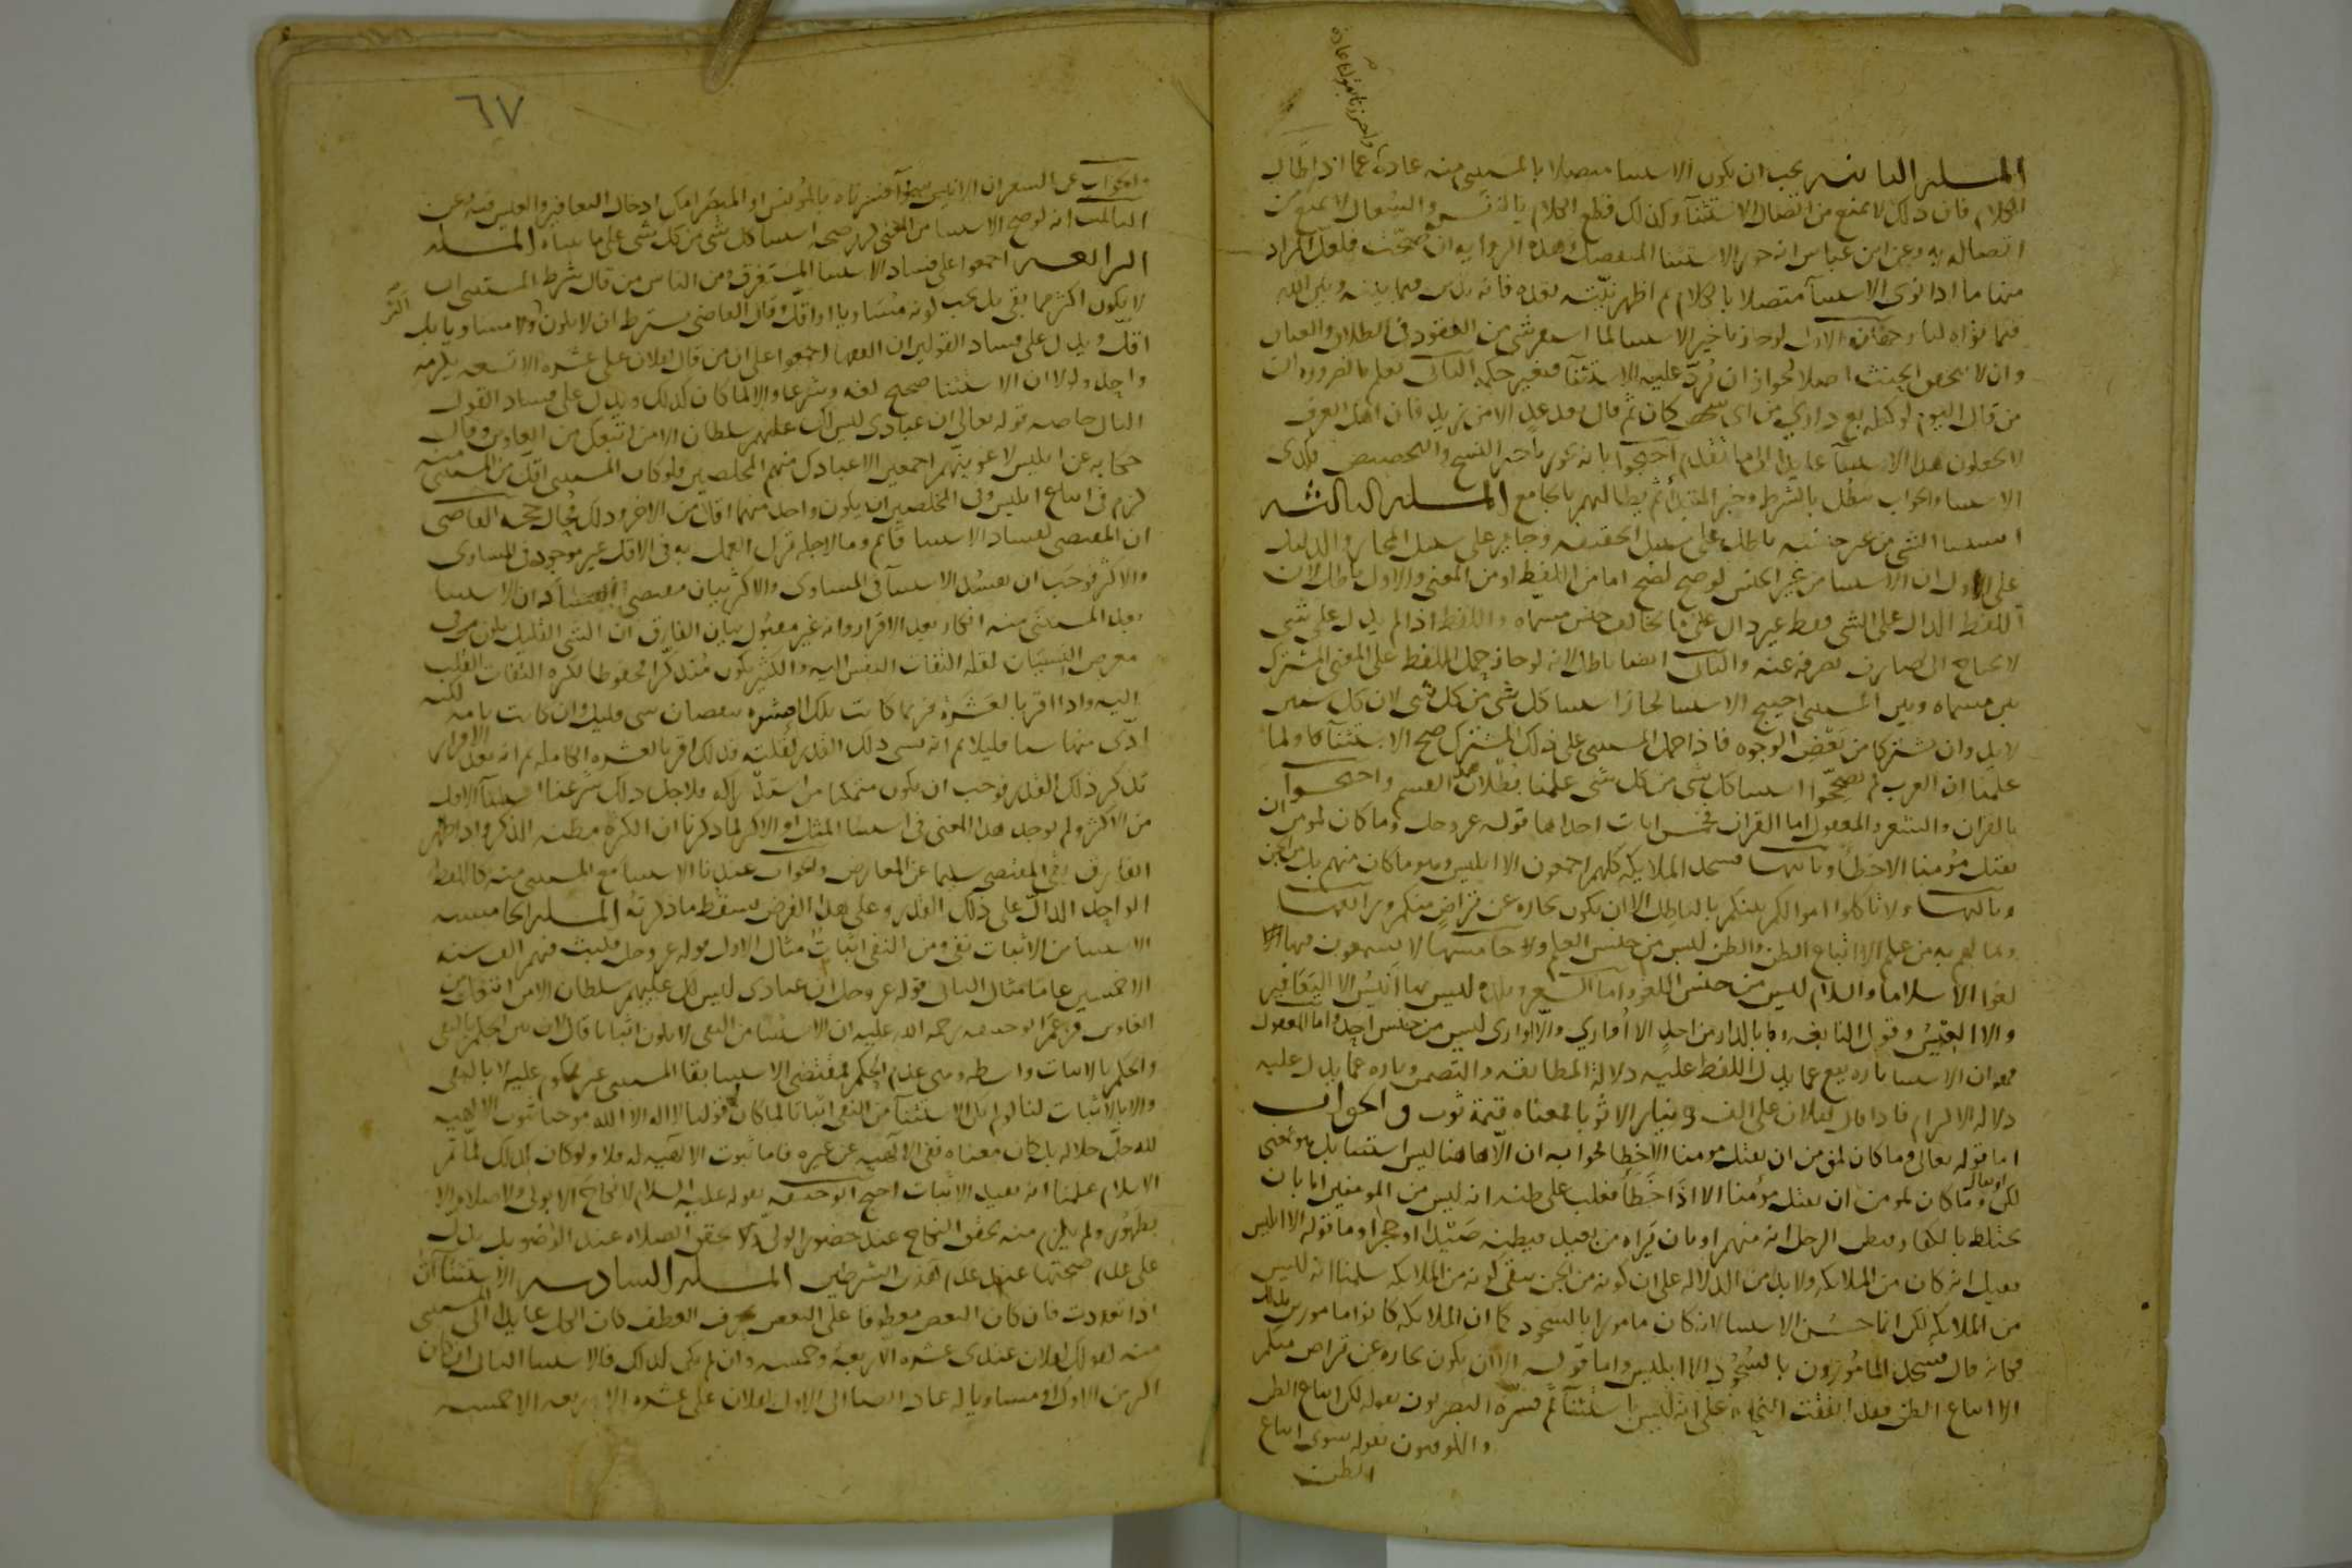 واحترزنا بقولنا عادة
المسله الثانيه يجب ان يكون الاستثنا متصلا بالمستثنى منه عادة عما اذا طال
الكلام فان ذلك لا يمنع من اتصال الاستثنآ وكذلك قطع الكلام بالنفس والسعال لا يمنع من
اتصاله به وعن ابن عباس انه جوز الاستثنا المنفصل وهذه الروايه ان صحت فلعل المراد
منها ما اذا نوى الاستثنآ متصلا بالكلام ثم اظهر نيته بعده فانه يدين فيما بينه وبين الله
فيما نواه لنا وجهان الاول لو جاز تاخير الاستثنا لما استقر شى من العقود فى الطلاق والعتاق
وان لا يتحقق الحنث اصلا لجواز ان يرد عليه الاستثنآ فيغير حكمه الثانى نعلم بالضروره ان
من قال اليوم لوكيله بع دارى من اى شخص كان ثم قال بعد غد الا من زيد فان اهل العرف
لا يجعلون هذا الاستثنآ عايدا الى ما تقدم احتجوا بانه يجوز تاخير النسخ والتخصيص فكذى
الاستثنا والجواب يبطل بالشرط وخبر المبتدا ثم يطالبهم بالجامع المسله الثالثه
استثنا الشى من غير جنسه باطل على سبيل الحقيقه وجايز على سبيل المجاز والدليل
على الاول ان الاستثنا من غير الجنس لو صح لصح اما من اللفظ او من المعنى والاول باطل لان
اللفظ الدال على الشى فقط غير دال على ما يخالف جنس مسماه واللفظ اذا لم يدل على شى
لا يحتاج الى صارف يصرفه عنه والثانى ايضا باطل لانه لو جاز حمل اللفظ على المعنى المشترك
بين مسماه وبين المستثنى ليصح الاستثنا لجاز استثنا كل شى من كل شى لان كل شيين
لا بد وان يشتركا من بعض الوجوه فاذا حمل المستثنى على ذلك المشترك صح الاستثنآ ولما
علمنا ان العرب لم يصححوا استثنا كل شى من كل شى علمنا بطلان هذا القسم واحتجوا
بالقران والشعر والمعقول اما القران فخمس ايات احداها قوله عز وجل وما كان لمومن ان
يقتل مؤمنا الا خطأ وثانيها فسجد الملايكه كلهم اجمعون الا ابليس وهو ما كان منهم بل من الجن
وثالثها ولا تاكلوا اموالكم بينكم بالباطل الا ان يكون تجاره عن تراض منكم ورابعها
وما لهم به من علم الا اتباع الظن والظن ليس من جنس العلم وخامسها لا يسمعون فيها
لغوا الا سلاما والسلام ليس من جنس اللغو واما الشعر وبلدة ليس بها انيس الا اليعافير
والا العيس وقول النابغه وما بالدار من احد الا أوارى والاوارى ليس من جنس احد واما المعقول
فهو ان الاستثنا تاره يقع عما يدل اللفظ عليه دلالة المطابقه والتضمن وتاره عما يدل عليه
دلاله الالتزام فاذا قال لفلان على الف دينار الا ثوبا فمعناه قيمة ثوب والجواب
اما قوله تعالى وما كان لمومن ان يقتل مومنا الا خطأ فجوابه ان الا هاهنا ليس استثنا بل هو بمعنى
لكن او يقال وما كان لمومن ان يقتل مؤمنا الا اذا خطأ فغلب على ظنه انه ليس من المومنين اما بان
يختلط بالكفار فيظن الرجل انه منهم او بان يراه من بعيد فيظنه صيدا او حجرا وما قوله الا ابليس
فقيل انه كان من الملايكه ولا بد من الدلاله على ان كونه من الجن ينفى كونه من الملايكه سلمنا انه ليس
من الملايكه لكن انما حسن الاستثنا لانه كان مامورا بالسجود كما ان الملايكه كانوا مامورين بذلك
فكانه قال فسجد المامورون بالسجود الا ابليس واما قوله الا ان يكون تجاره عن تراض منكم
الا اتباع الظن فقد اتفقت النحاة على انه ليس استثنآ ثم فسره البصريون بقوله لكن اتباع الظن
والكوفيون بقوله سوى اتباع
الظن
٦٧
والجواب عن الشعر ان الانيس سوآ فسرناه بالمؤنس او المبصر امكن ادخال اليعافير والعيس فيه وعن
الثالث انه لو صح الاستثنا من المعنى لزم صحه استثنا كل شى من كل شى على ما بيناه المسله
الرابعه اجمعوا على فساد الاستثنا المستغرق ومن الناس من قال شرط المستثنى ان
لا يكون اكثر مما بقى بل يجب كونه مساويا او اقل وقال القاضى يشترط ان لا يكون اكثر ولا مساويا بل
اقل ويدل على فساد القولين ان الفقها اجمعوا على ان من قال لفلان على عشره الا تسعه يلزمه
واحد ولولا ان الاستثنا صحيح لغه وشرعا والا لما كان كذلك ويدل على فساد القول
الثانى خاصه قوله تعالى ان عبادى ليس لك عليهم سلطان الا من اتبعك من الغاوين وقال
حكايه عن ابليس لاغوينهم اجمعين الا عبادك منهم المخلصين فلو كان المستثنى اقل من المستثنى منه
لزم فى اتباع ابليس وفى المخلصين ان يكون واحد منهما اقل من الاخر وذلك محال حجه القاضى
ان المقتضى لفساد الاستثنا قايم وما لاجله ترك العمل به فى الاقل غير موجود فى المساوى
والاكثر فوجب ان يفسد الاستثنآ فى المساوى والاكثر بيان مقتضى الفساد ان الاستثنا
بعد المستثنى منه انكار بعد الاقرار وانه غير مقبول بيان الفارق ان الشى القليل يكون فى
معرض النسيان لقله التفات النفس اليه والكثير يكون متذكرا محفوظا لكثره التفات القلب
اليه واذا اقر بالعشرة فربما كانت تلك العشره بنقصان شى قليل وان كانت تامه لكنه
ادى منها شيا قليلا ثم انه نسى ذلك القدر لقلته فلذلك اقر بالعشره الكامله ثم انه بعد الاقرار
تذكر ذلك القدر فوجب ان يكون متمكنا من استدراكه فلاجل ذلك شرعنا استثنآ الاقل
من الاكثر ولم يوجد هذا المعنى فى استثنا المثل او الاكثر لما ذكرنا ان الكثرة مظنه الذكر واذا ظهر
الفارق بقى المقتضى سليما عن المعارض والجواب عندنا الاستثنا مع المستثنى منه كاللفظ
الواحد الدال على ذلك القدر وعلى هذا الفرض يسقط ما ذكرته المسله الخامسه
الاستثنا من الاثبات نفى ومن النفى اثبات مثال الاول قوله عز وجل فلبث فيهم الف سنه
الا خمسين عاما مثال الثانى قوله عز وجل ان عبادى ليس لك عليهم سلطان الا من اتبعك من
الغاوين وزعم ابو حنيفه رحمه الله عليه ان الاستثنا من النفى لا يكون اثباتا قال لان بين الحكم بالنفى
والحكم بالاثبات واسطه وهى عدم الحكم فمقتضى الاستثنا بقا المستثنى غير محكوم عليه لا بالنفى
ولا بالاثبات لنا لو لم يكن الاستثنآ من النفى اثباتا لما كان قولنا لا اله الا الله موجبا ثبوت الالهيه
لله جل جلاله بل كان معناه نفى الالهيه عن غيره فاما ثبوت الالهيه له فلا ولو كان كذلك لما تم
الاسلام علمنا انه يفيد الاثبات احتج ابو حنيفه بقوله عليه السلام لا نكاح الا بولى ولا صلاه الا
بطهور ولم يلزم منه تحقق النكاح عند حضور الولى ولا تحقق الصلاه عند الوضو بل يدل
على عدم صحتها عند عدم هذين الشرطين المسله السادسه الاستثناآت
اذا تعددت فان كان البعض معطوفا على البعض بحرف العطف كان الكل عايدا الى المستثنى
منه كقولك لفلان عندى عشره الا اربعة وخمسه وان لم يكن كذلك فالاستثنا الثانى ان كان
اكثر من الاول او مساويا له عاد ايضا الى الاول لفلان على عشره الا اربعه الا خمسه